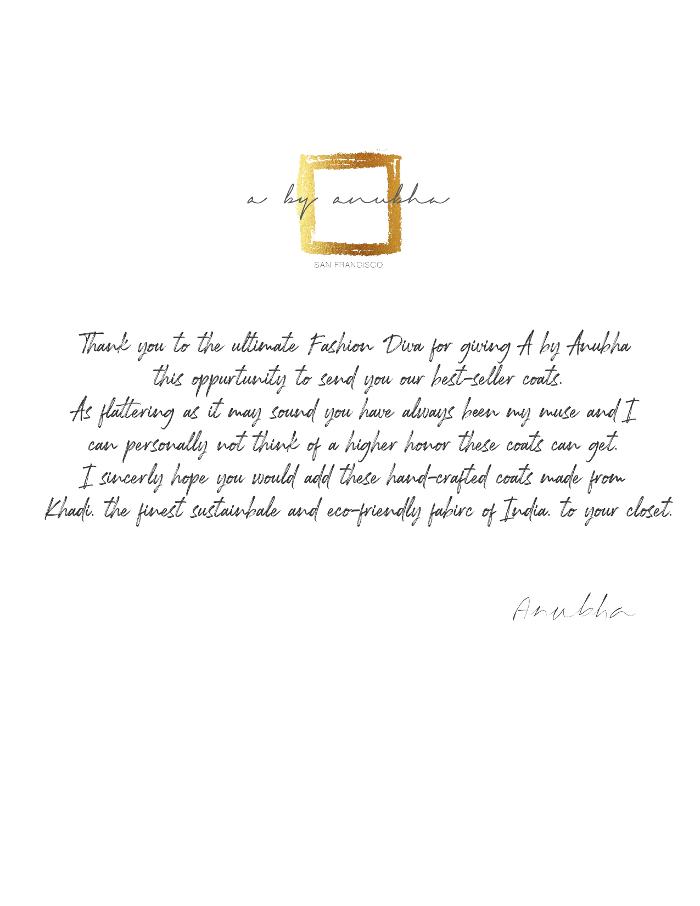 a by anubha
SAN FRANCISCO
Thank you to the ultimate Fashion Diva for giving A by Anubha
this oppurtunity to send you our best-seller coats.
As flattering as it may sound you have always been my muse and I
can personally not think of a higher honor these coats can get.
I sincerly hope you would add these hand-crafted coats made from
Khadi. the finest sustainbale and eco-friendly fabirc of India. to your closet.
Anubha